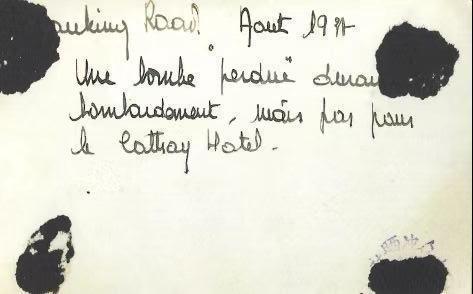 anking Road. Aout 1937
Une bombe perdue duran
bombardement, mais pas pour
le Cathay Hotel.